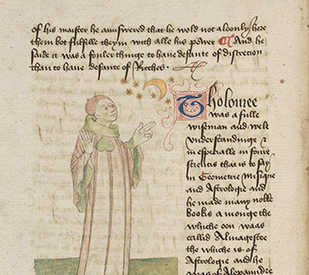 of his master he answered that he wold not aldonly here
them bot fulfille theym with alle his power And he
saide it was a fouler thinge to hane defaute of discrecion
than to have defaute of Riches
Tholomee
was a fulle
wiseman and welt
understandinge
in especialle in foure
sciences that is to say
in Geometrie Musique
and Astrologie and
he made many noble
books amonge the
whiche oon was
called Almageste
the whiche is of
Astrologie and he
was of Alexandrie